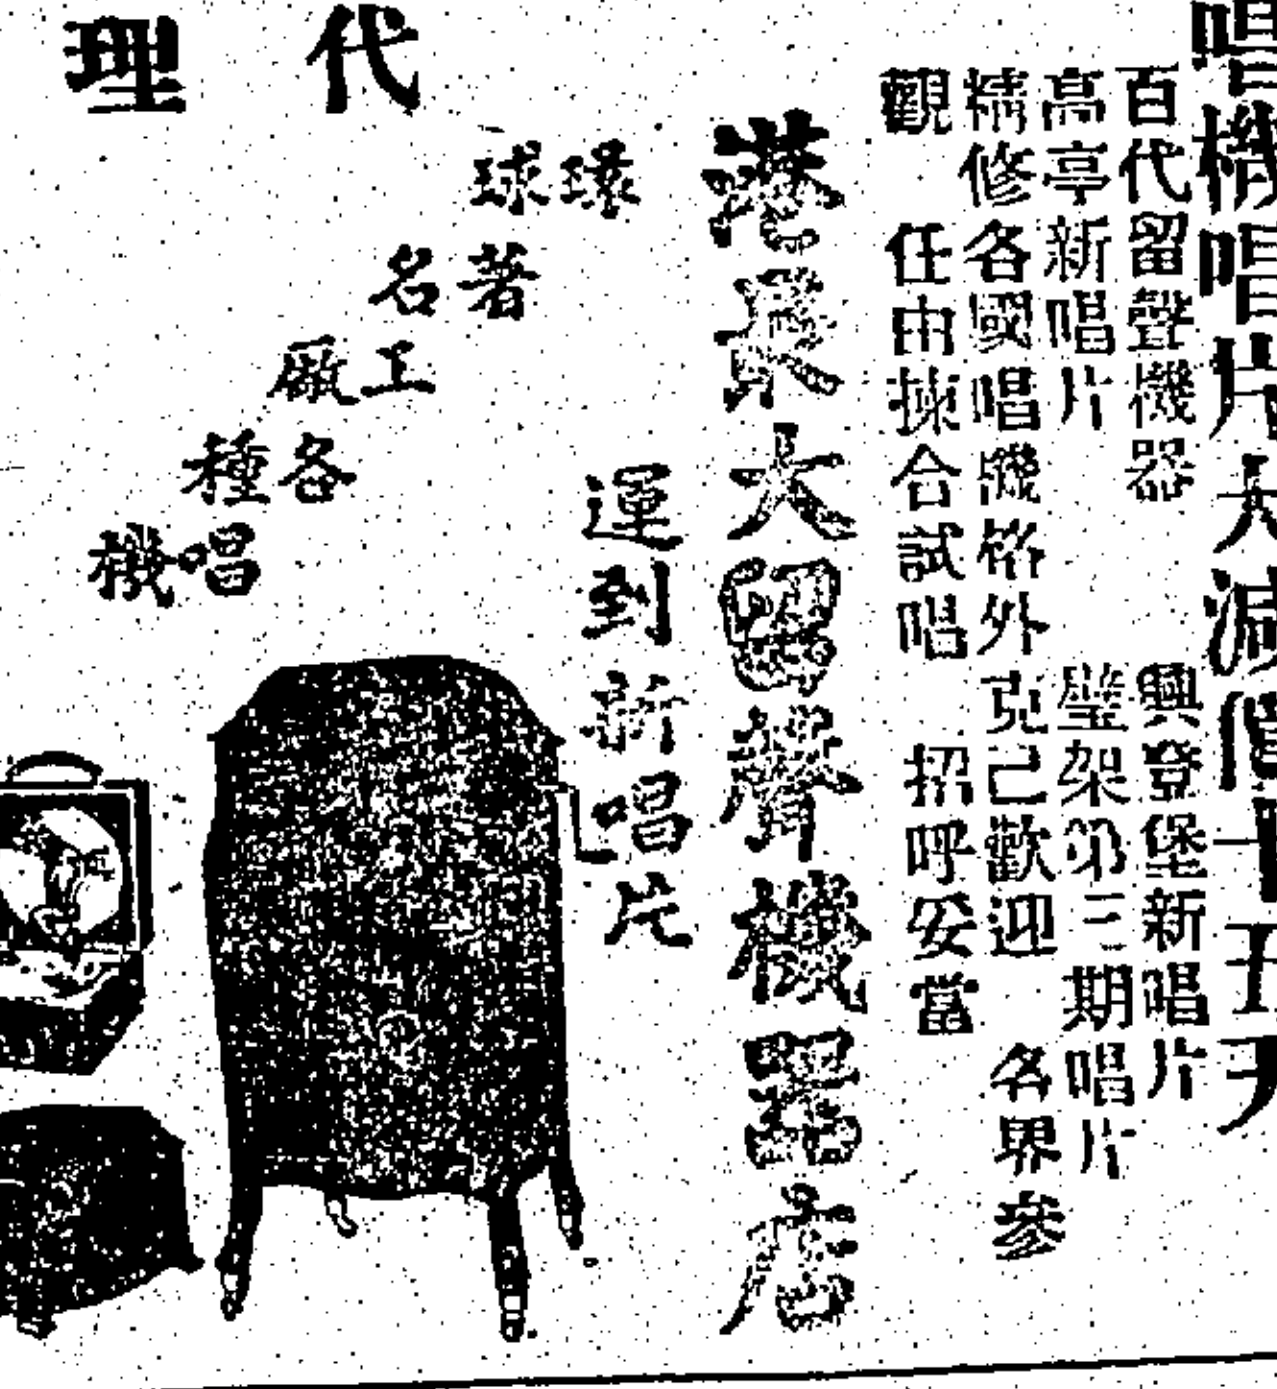 唱機唱片大減價十五天
百代留聲機器　興登堡新唱片
高亭新唱片　璧架第三期唱片
精修各國唱機格外克己歡迎　各界參
觀　任由揀合試唱　招呼妥當
大留聲機器店
運到新唱片
代理
環球
著名
工廠
各種
唱機